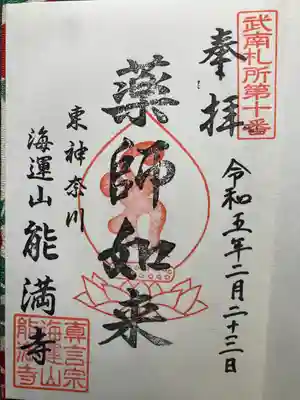 武南札所第十番
奉拝
令和五年二月二十二日
薬師如来
東神奈川
海運山 能満寺
真言宗
海運山
能満寺